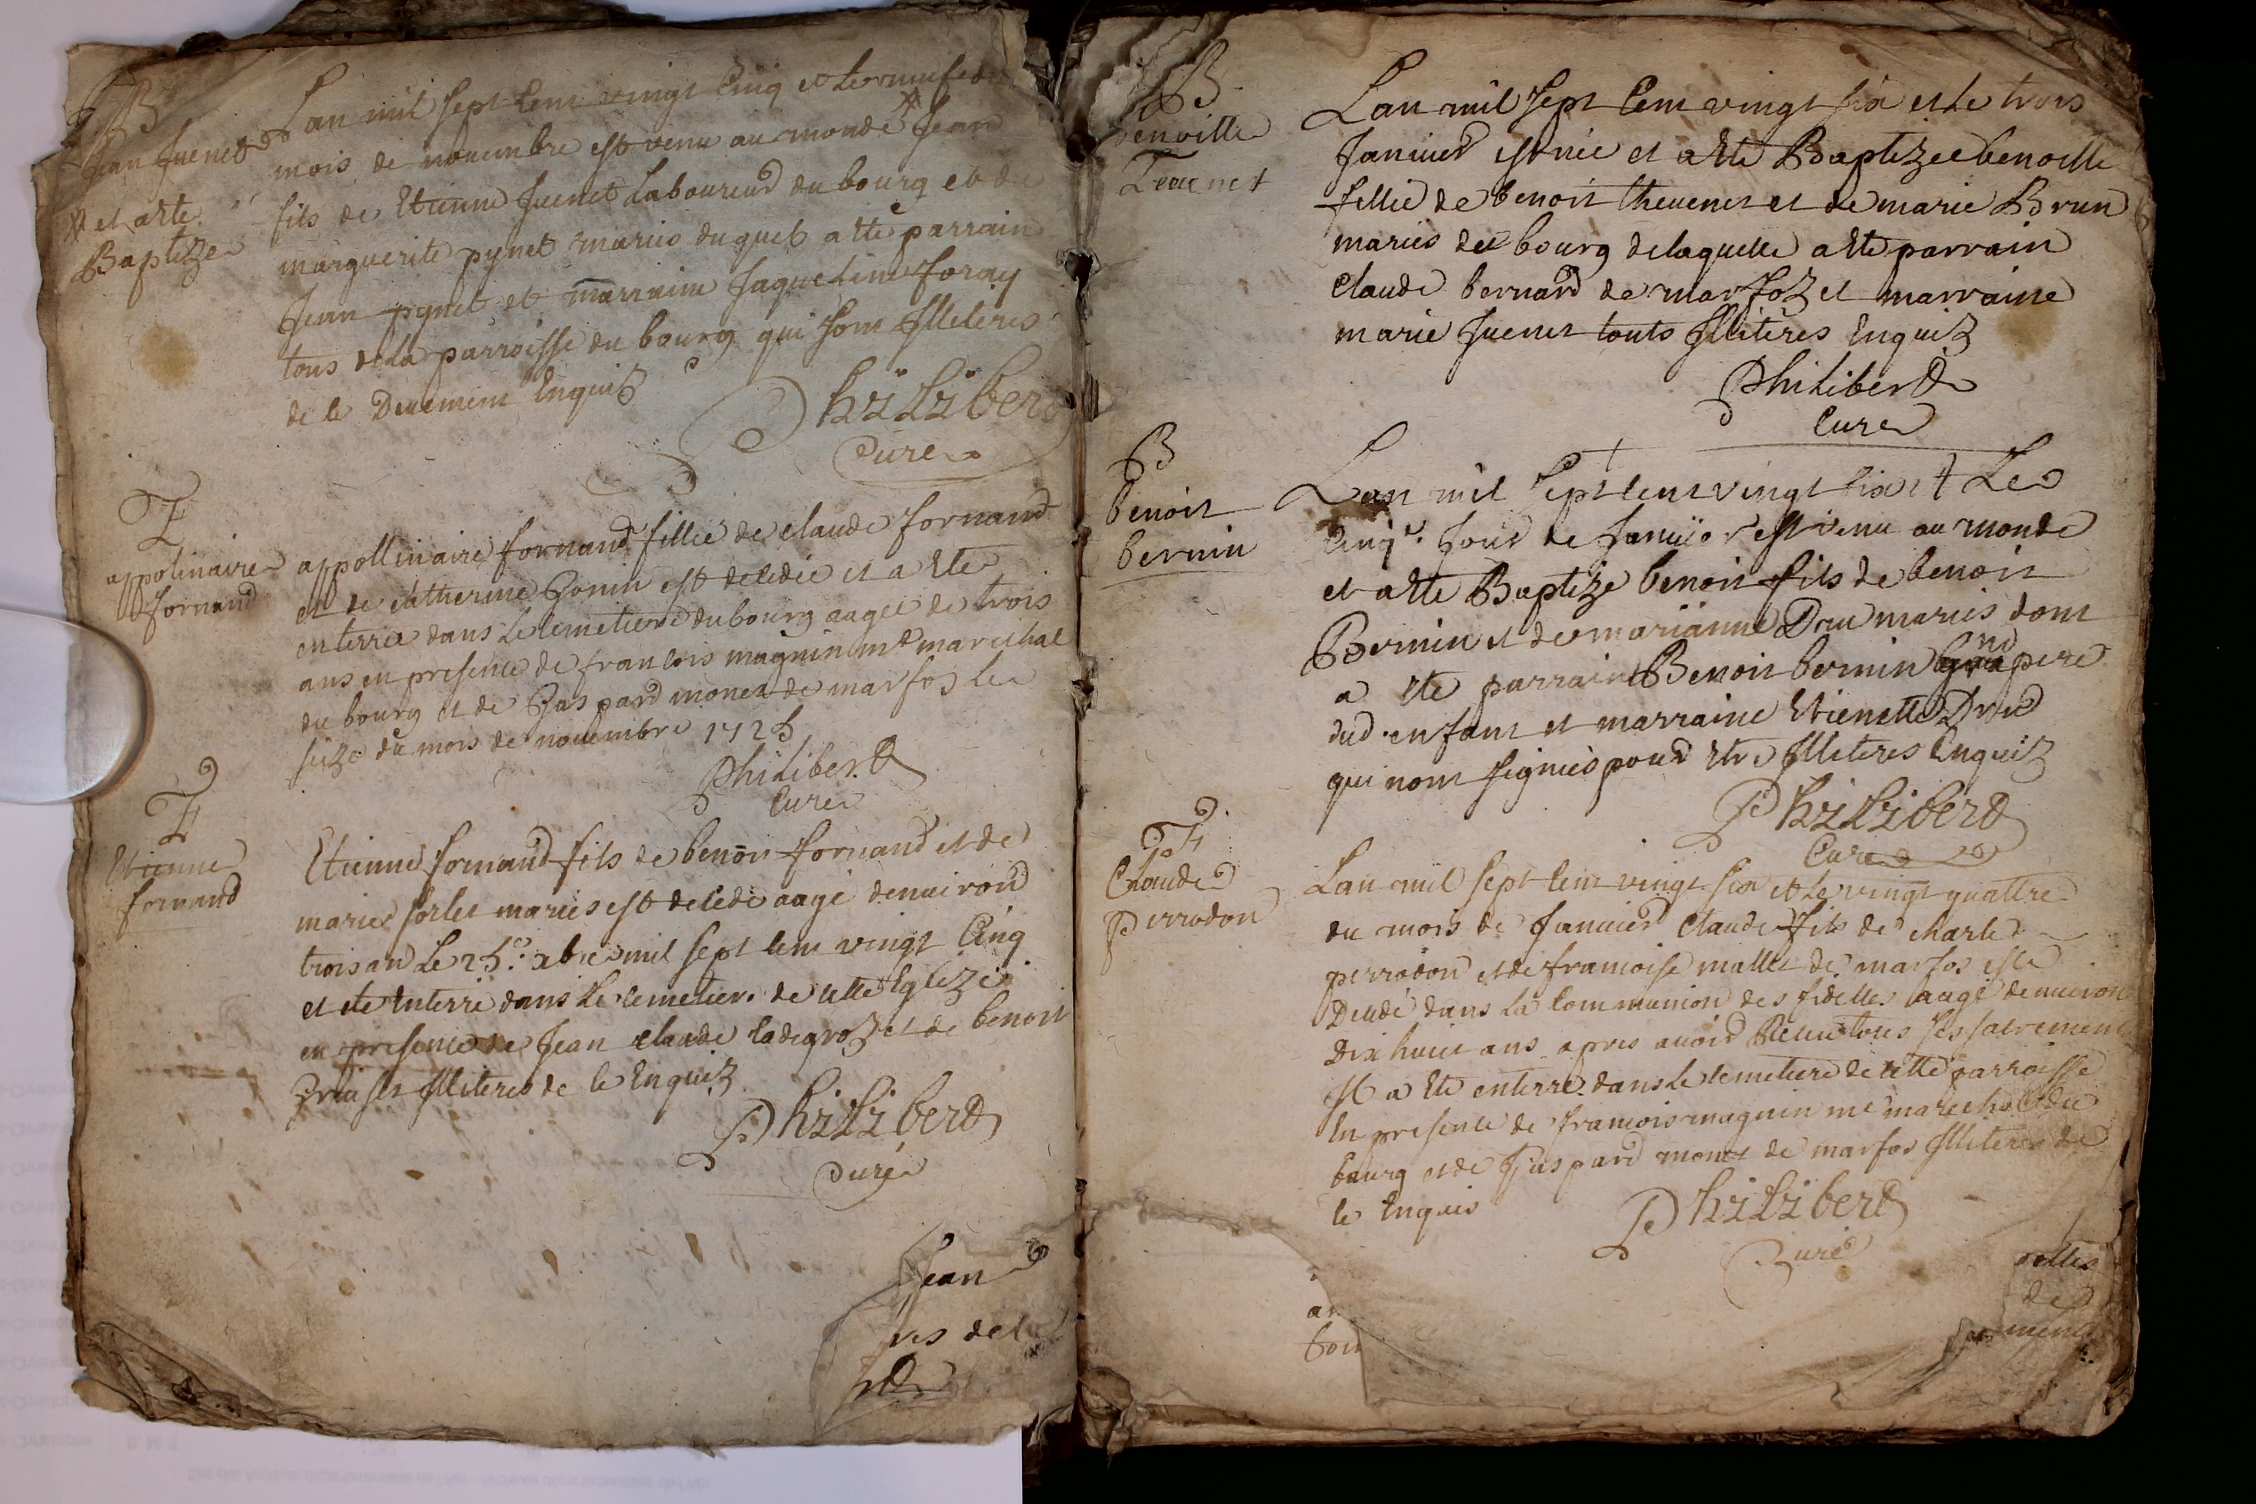 B
Jean Juenet
# et a ete
Baptize
Lan mil sept Cent vingt Cinq et le neufe du
mois de nouembre est venu au monde # Jean
fils de Etienne Juenet Laboureur du bourg et de
marguerite pynet mariés duquel a ete parrain
Jean pynet et marraine Jaqueline foray
tous de la parroisse du bourg qui sont Illiteres
de le Deuement Enquis
Philibert
Curé
appolinaire
fornand
appollinaire fornand fillie de claude fornand
et de catherine Gonin est decedée et a ete
enterrée dans Le Cemetiere du bourg aagée de trois
ans en presence de francois magnin me marechal
du bourg et de Gaspard monet de marfos le
seize du mois de nouembre 1725
Philibert
Curé
Etienne
fornand
Etienne fornand fils de benoit fornand et de
marie sorlet mariés est decede aagé denuiron
trois an Le 25e xbre mil sept Cent vingt Cinq
et ete Enterré dans Le Cemetiere de cette Eglize
en presence de Jean claude ladegroz et de benoit
Illiteres de le Enquis
Philibert
Curé
Jean
de la
B
benoitte
Teuenet
Lan mil sept Cent vingt six et Le trois
Januier est née et a ete Baptizee benoitte
fillie de benoit theuenet et de marie Brun
mariés du bourg de laquelle a ete parrain
claude bernard de marfoz et marraine
marie Juenet touts Illitéres Enquis
Philibert
Curé
B
benoit
bernin
Lan mil sept cent vingt six et Le
Cinqe Jour de Januier est venu au monde
et a ete Baptize benoit fils de benoit
Bernin et de marianne Dru mariés dont
a ete parrain Benoit bernin grand pere
dud enfant et marraine Etienette Dru
qui nont signies pour etre Illiteres Enquis
Philibert
Curé
Claude
Perrodon
Lan mil sept Cent vingt six et Le vingt quattre
du mois de Januier Claude fils de charle
perrodon et de francoise mallet de marfos este
Decedé dans La Communion des fidelles aagé denuiron
Dix huict ans apres auoir Receu tous ses sacrements
Il a ete enterré dans Le Cemetiere de cette parroisse
En presence de francois magnin me marechal du
bourg et de Gaspard monet de marfos Illiteres de
le Enquis
Philibert
Curé